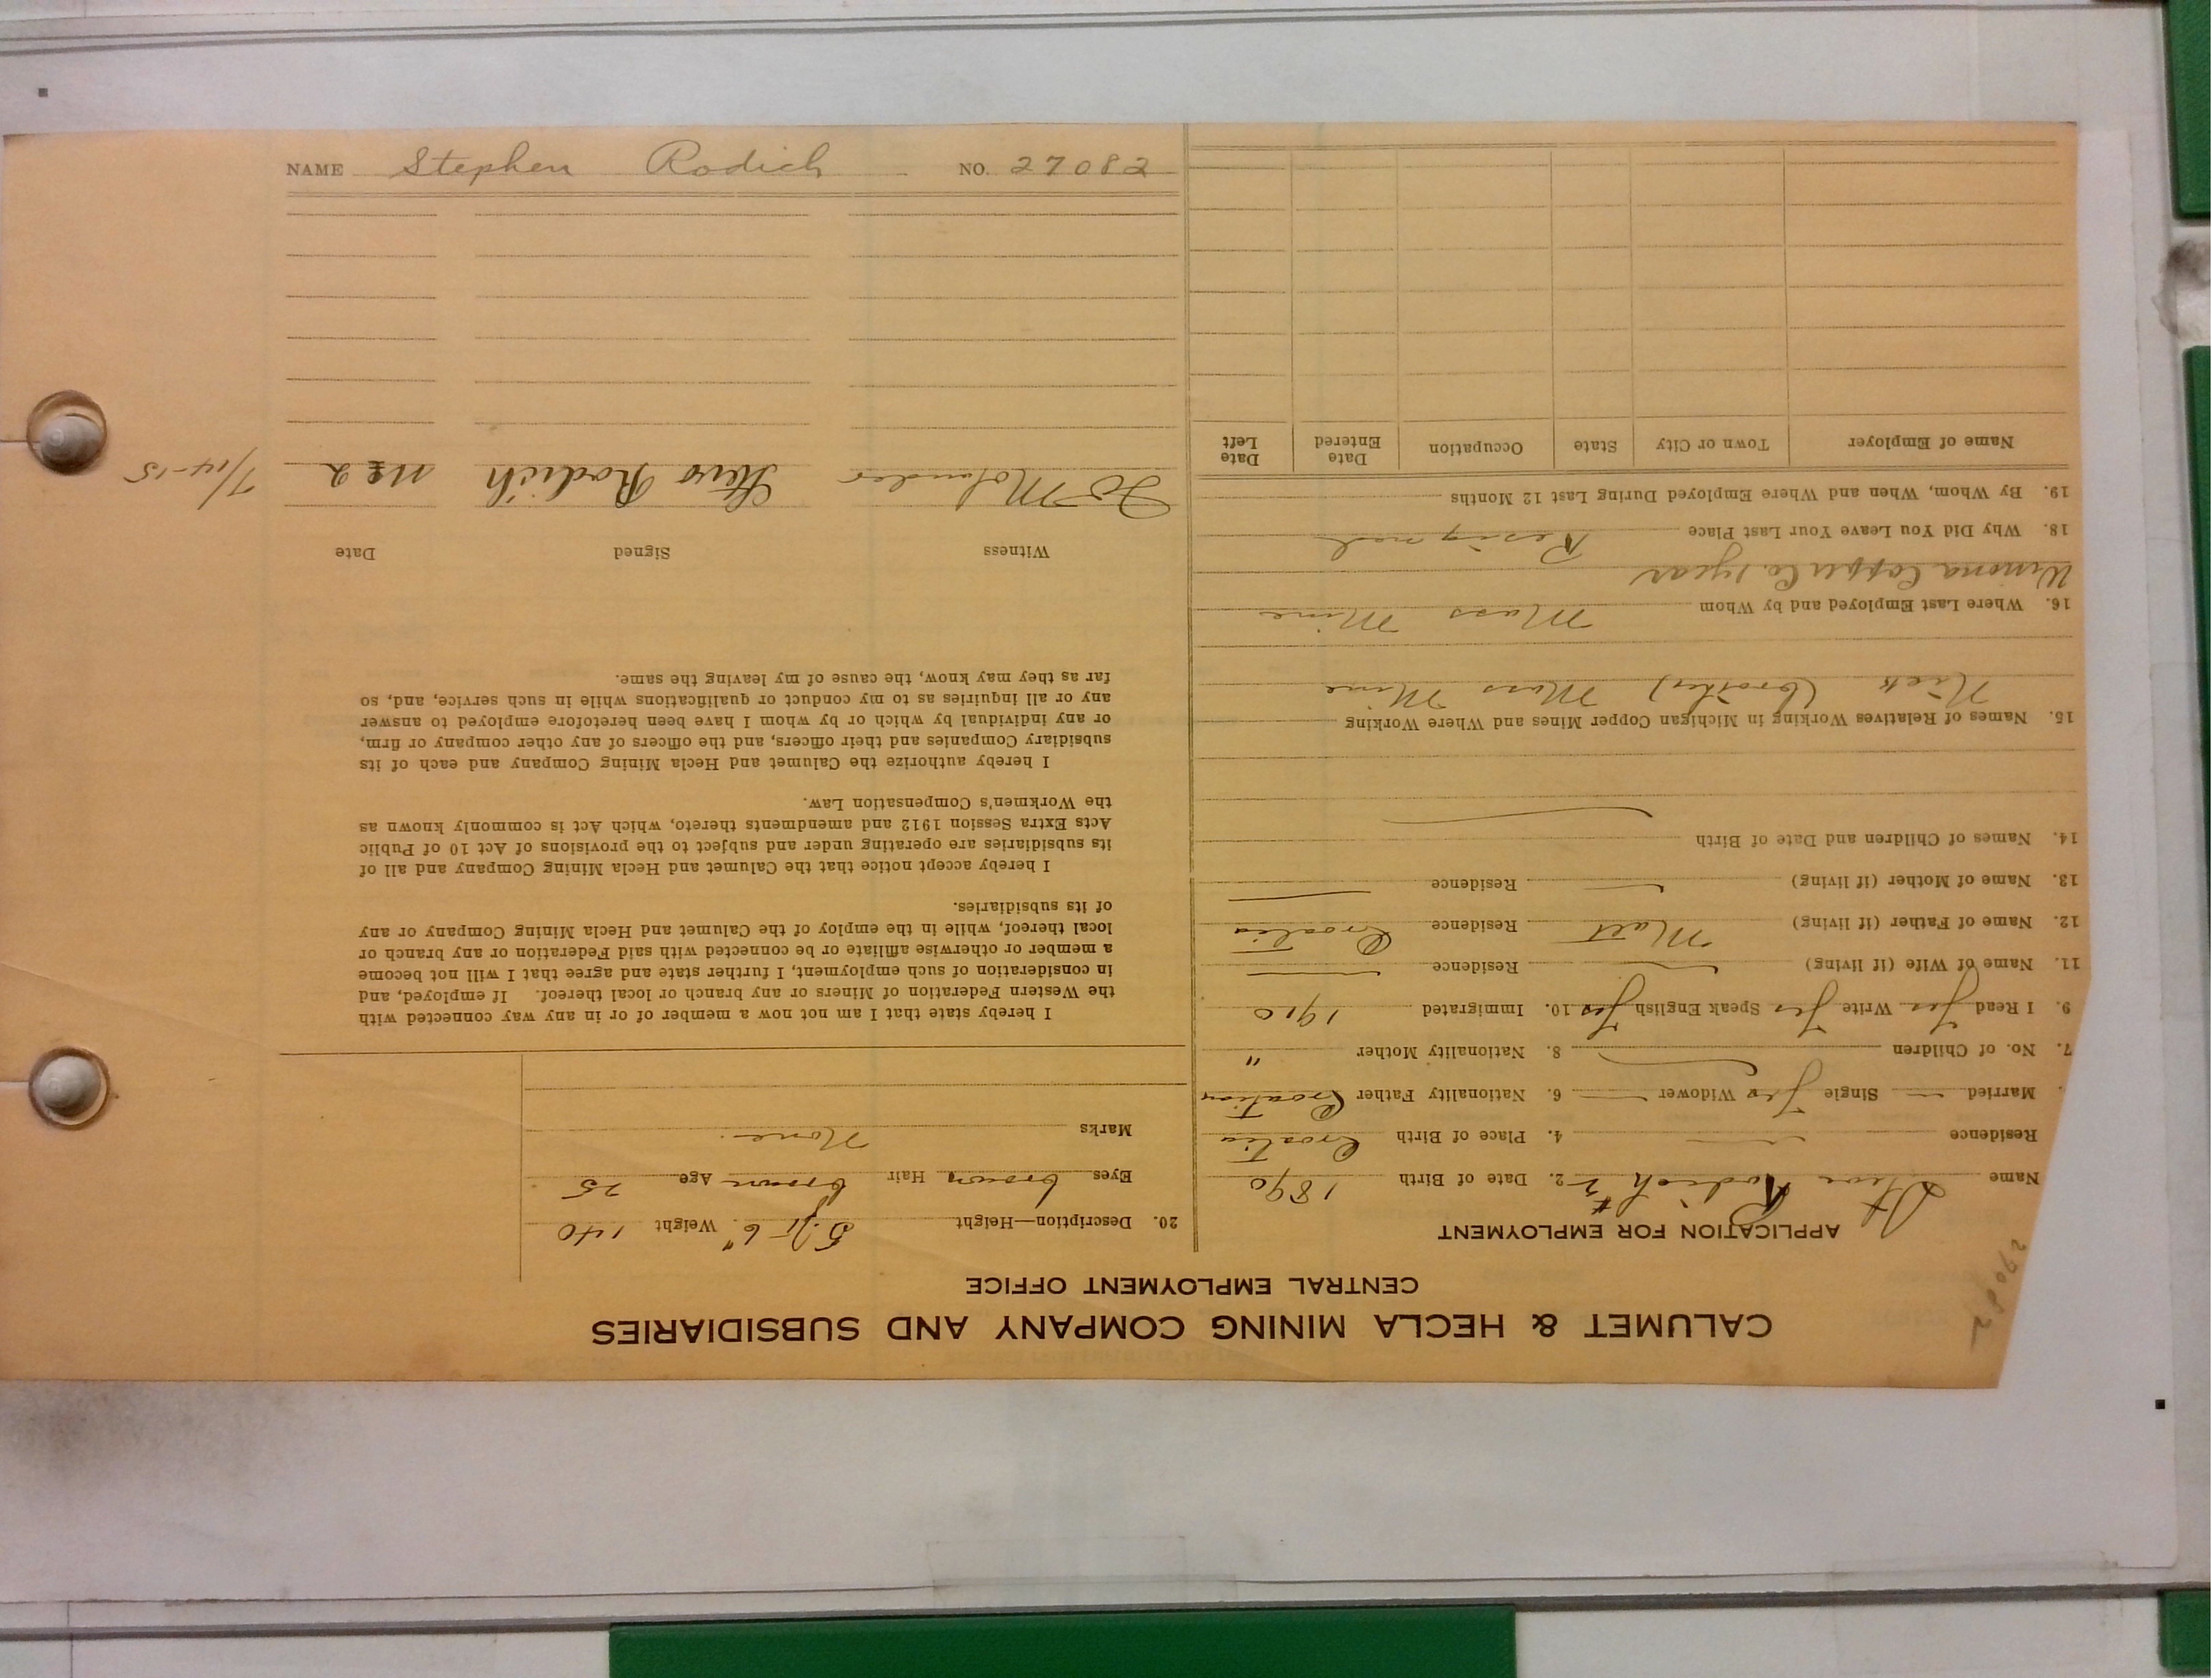 CALUMET & HECLA MINING COMPANY AND SUBSIDIARIES
CENTRAL EMPLOYMENT OFFICE
27082
APPLICATION FOR EMPLOYMENT
Name Steve Rodich #2 2. Date of Birth 1890
Residence — 4. Place of Birth Croatia
Married — Single Yes Widower — 6. Nationality Father Croatian
7. No. of Children 8. Nationality Mother "
9. I Read Yes Write Yes Speak English Yes 10. Immigrated 1910
11. Name of Wife (if living) — Residence —
12. Name of Father (if living) Matt Residence Croatia
13. Name of Mother (if living) — Residence —
14. Names of Children and Date of Birth
15. Names of Relatives Working in Michigan Copper Mines and Where Working
Nick (brother) Mass Mine
16. Where Last Employed and by Whom Mass Mine
Winona Copper Co. 1 year
18. Why Did You Leave Your Last Place Resigned
19. By Whom, When and Where Employed During Last 12 Months
Name of Employer Town or City State Occupation Date Entered Date Left
20. Description—Height 5ft 6" Weight 140
Eyes brown Hair brown Age 25
Marks None.
I hereby state that I am not now a member of or in any way connected with
the Western Federation of Miners or any branch or local thereof. If employed, and
in consideration of such employment, I further state and agree that I will not become
a member or otherwise affiliate or be connected with said Federation or any branch or
local thereof, while in the employ of the Calumet and Hecla Mining Company or any
of its subsidiaries.
I hereby accept notice that the Calumet and Hecla Mining Company and all of
its subsidiaries are operating under and subject to the provisions of Act 10 of Public
Acts Extra Session 1912 and amendments thereto, which Act is commonly known as
the Workmen's Compensation Law.
I hereby authorize the Calumet and Hecla Mining Company and each of its
subsidiary Companies and their officers, and the officers of any other company or firm,
or any individual by which or by whom I have been heretofore employed to answer
any or all inquiries as to my conduct or qualifications while in such service, and, so
far as they may know, the cause of my leaving the same.
Witness Signed Date
Molander Rodich 7/14-15
NAME Stephen Rodich NO. 27082